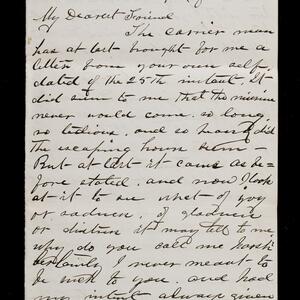 My Dearest Friend
The carrier man
has at last brought for me a
letter from your own self
dated of the 25th instant. It
did seem to me that the missive
never would come, so long,
so tedious, and so did
the escaping hours seem—
But at last it came as be-
fore stated, and now I look
at it to see what of joy
or sadness, of gladness
or distress it may tell to me
why do you call me harsh
certainly I never meant to
be such to you, and had
my intent always given